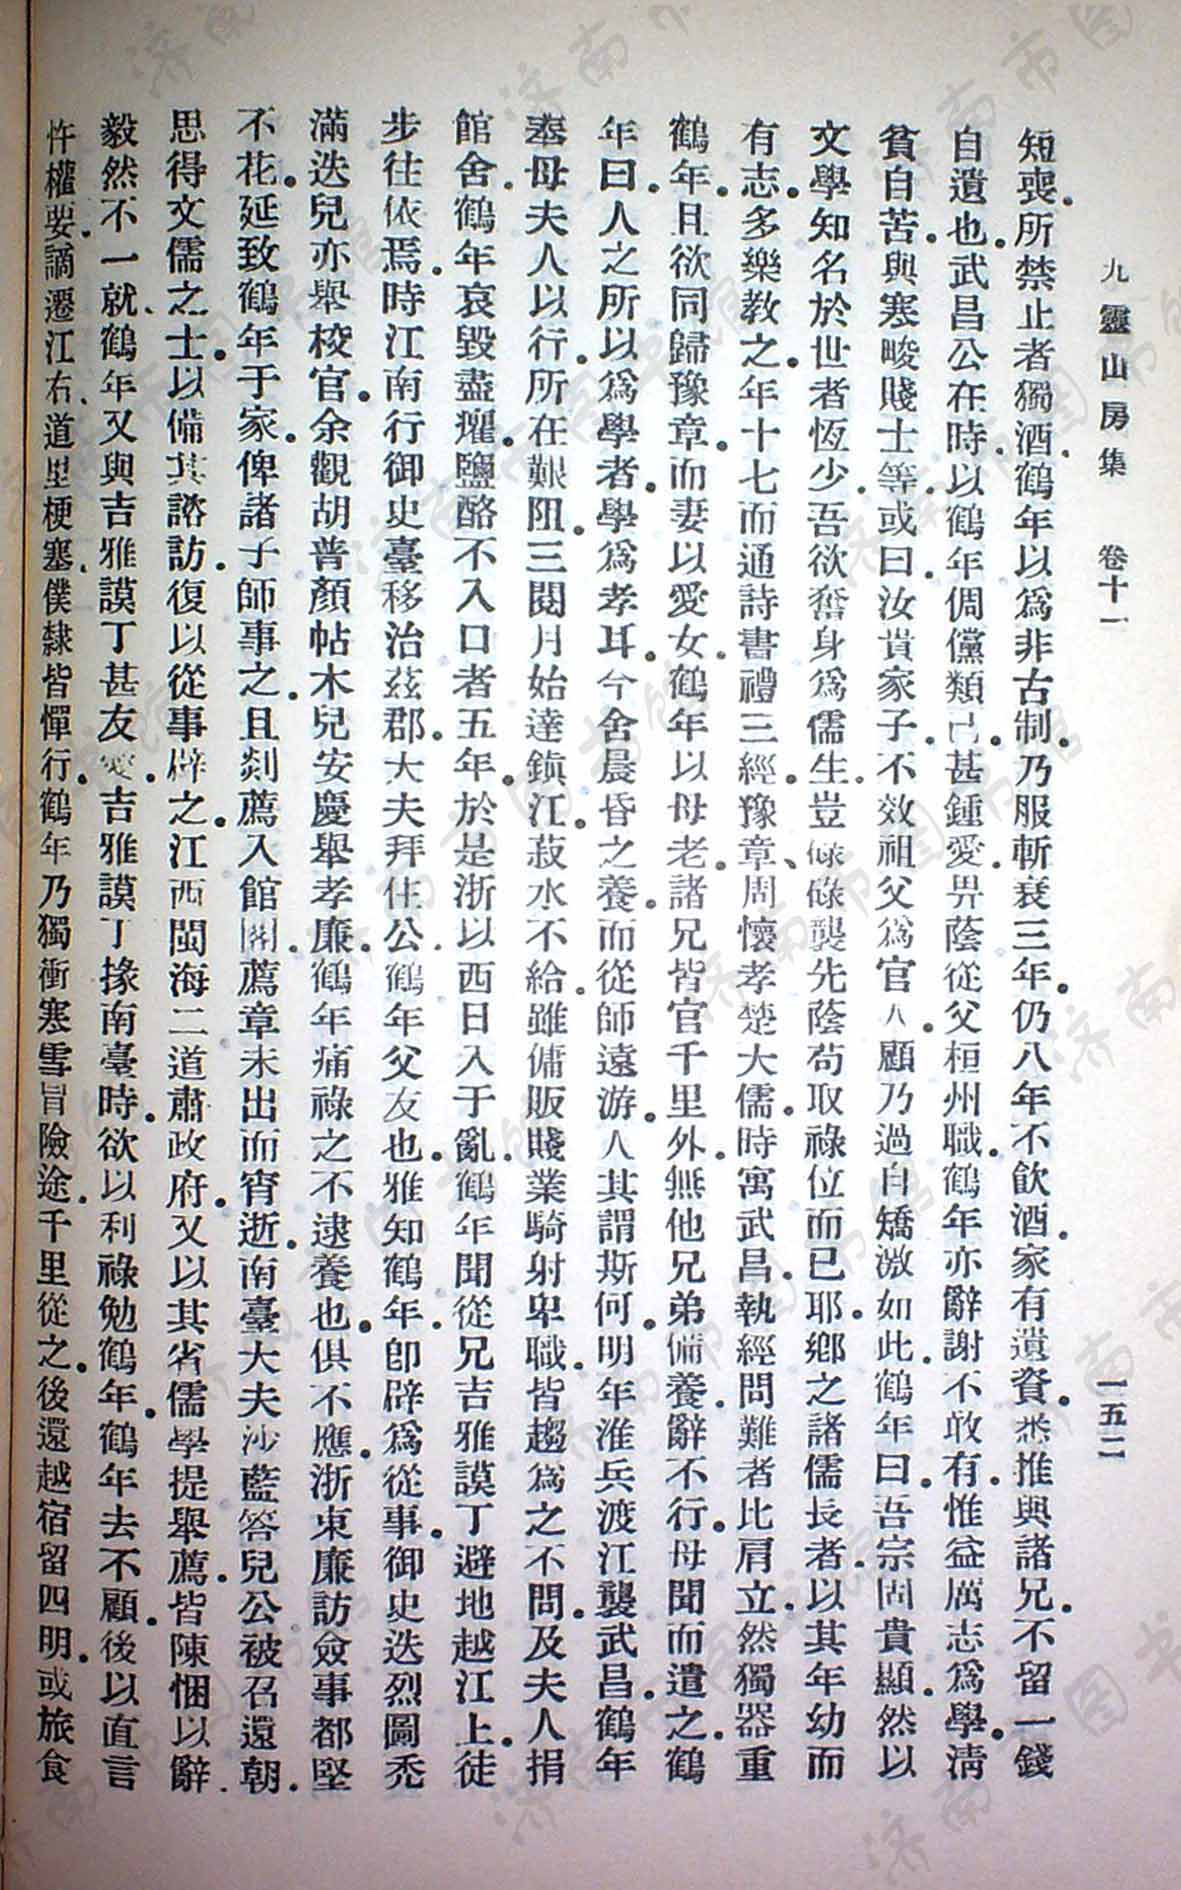 九靈山房集　卷十一　一五二
短喪。所禁止者獨酒。鶴年以爲非古制。乃服斬衰三年。仍八年不飲酒。家有遺資。悉推與諸兄。不留一錢
自遺也。武昌公在時。以鶴年倜儻類己。甚鍾愛。畀蔭從父桓州職。鶴年亦辭謝不敢有。惟益厲志爲學。淸
貧自苦。與寒畯賤士等。或曰。汝貴家子。不效祖父爲官人。顧乃過自矯激如此。鶴年曰。吾宗固貴顯。然以
文學知名於世者恆少。吾欲奮身爲儒生。豈碌碌襲先蔭苟取祿位而已耶。鄉之諸儒長者。以其年幼而
有志。多樂敎之。年十七而通詩書禮三經。豫章、周懷孝楚大儒。時寓武昌。執經問難者比肩立。然獨器重
鶴年。且欲同歸豫章。而妻以愛女。鶴年以母老。諸兄皆官千里外。無他兄弟備養。辭不行。母聞而遣之。鶴
年曰。人之所以爲學者。學爲孝耳。今舍晨昏之養。而從師遠游。人其謂斯何。明年淮兵渡江襲武昌。鶴年
奉母夫人以行。所在艱阻。三閱月始達鎭江。菽水不給。雖傭販賤業騎射卑職。皆趨爲之不問。及夫人捐
館舍。鶴年哀毀盡癯。鹽酪不入口者五年。於是浙以西日入于亂。鶴年聞從兄吉雅謨丁避地越江上。徒
步往依焉。時江南行御史臺移治茲郡。大夫拜住公。鶴年父友也。雅知鶴年。卽辟爲從事。御史迭烈圖禿
滿迭兒亦舉校官。余觀胡普顏帖木兒安慶舉孝廉。鶴年痛祿之不逮養也。俱不應。浙東廉訪僉事都堅
不花。延致鶴年于家。俾諸子師事之。且剡薦入館閣。薦章未出而宵逝。南臺大夫沙藍答兒公被召還朝。
思得文儒之士。以備其諮訪。復以從事辟之。江西閩海二道肅政府。又以其省儒學提舉薦。皆陳悃以辭。
毅然不一就。鶴年又與吉雅謨丁甚友愛。吉雅謨丁掾南臺時。欲以利祿勉鶴年。鶴年去不顧。後以直言
忤權要。謫遷江右。道里梗塞。僕隸皆憚行。鶴年乃獨衝寒雪冒險途。千里從之。後還越宿留四明。或旅食